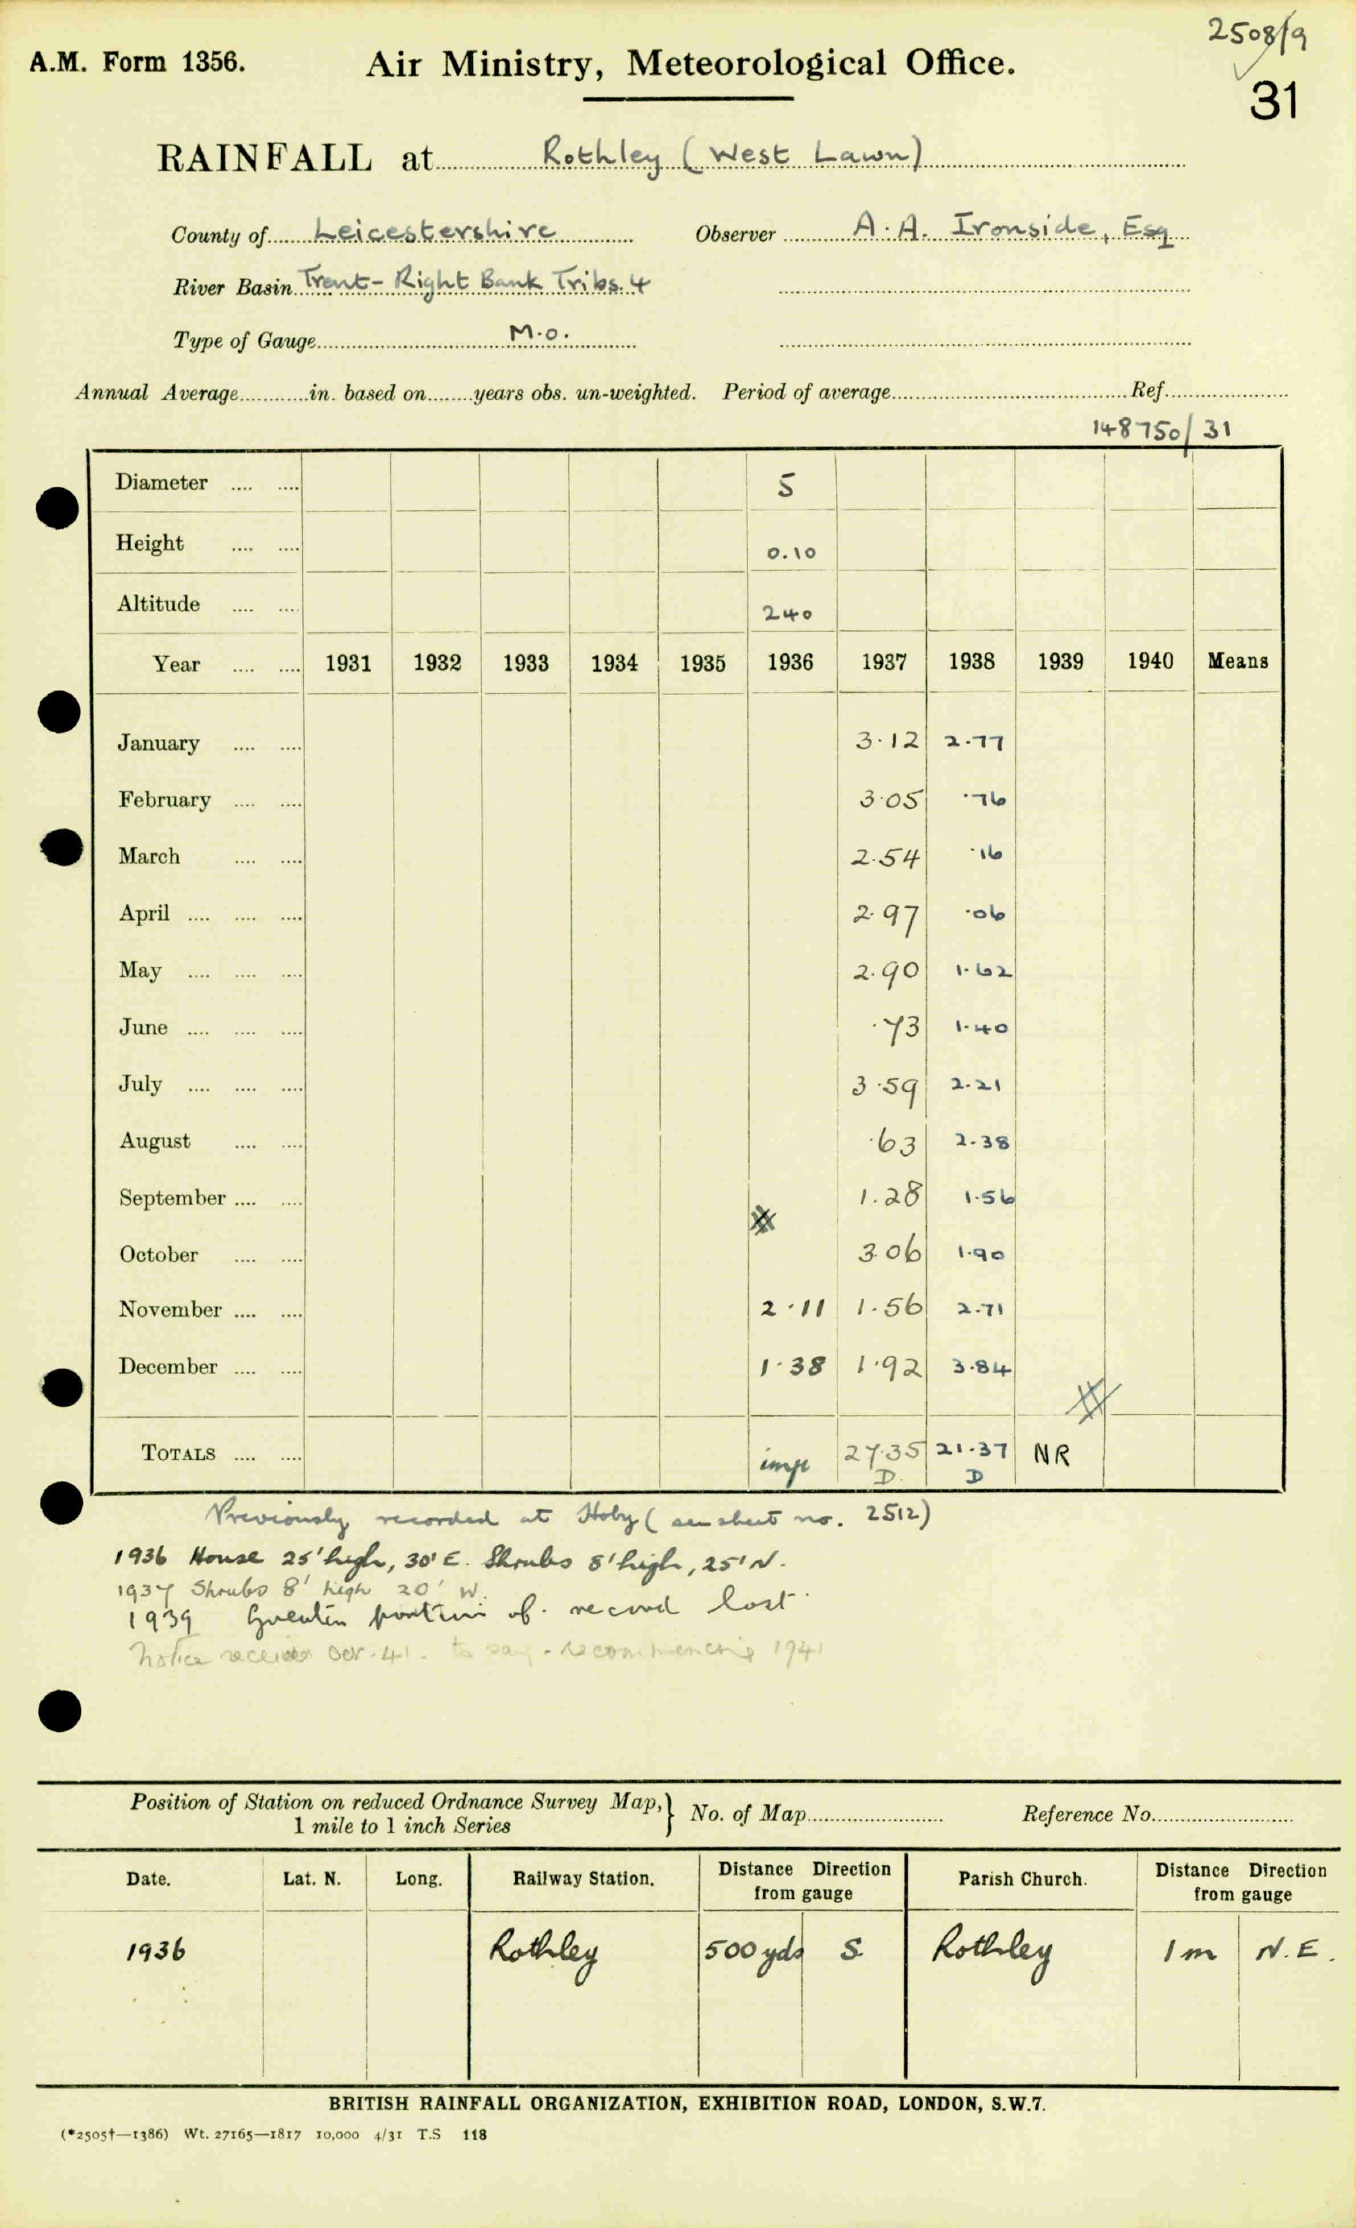 2508/9
A.M. Form 1356. Air Ministry, Meteorological Office.
31
RAINFALL at Rothley (West Lawn)
County of Leicestershire Observer A.A. Ironside, Esq
River Basin Trent - Right Bank Tribs. 4
Type of Gauge M.O.
Annual Average in. based on years obs. un-weighted. Period of average Ref.
148750/31
Diameter 5
Height 0.10
Altitude 240
Year 1931 1932 1933 1934 1935 1936 1937 1938 1939 1940 Means
January 3.12 2.77
February 3.05 .76
March 2.54 .16
April 2.97 .06
May 2.90 1.62
June .73 1.40
July 3.59 2.21
August .63 2.38
September 1.28 1.56
October 3.06 1.90
November 2.11 1.56 2.71
December 1.38 1.92 3.84
TOTALS imp 27.35 21.37 NR
D. D
Previously recorded at Hoby (see sheet no. 2512)
1936 House 25' high, 30' E. Shrubs 8' high, 25' N.
1937 Shrubs 8' high 20' W.
1939 Greater portion of record lost.
Notice received Oct. 41. to say recommencing 1941
Position of Station on reduced Ordnance Survey Map, } No. of Map Reference No.
1 mile to 1 inch Series
Date. Lat. N. Long. Railway Station. Distance Direction from gauge Parish Church. Distance Direction from gauge
1936 Rothley 500 yds S Rothley 1 m N.E.
BRITISH RAINFALL ORGANIZATION, EXHIBITION ROAD, LONDON, S.W.7.
(*2505†—1386) Wt. 27165—1817 10,000 4/31 T.S 118